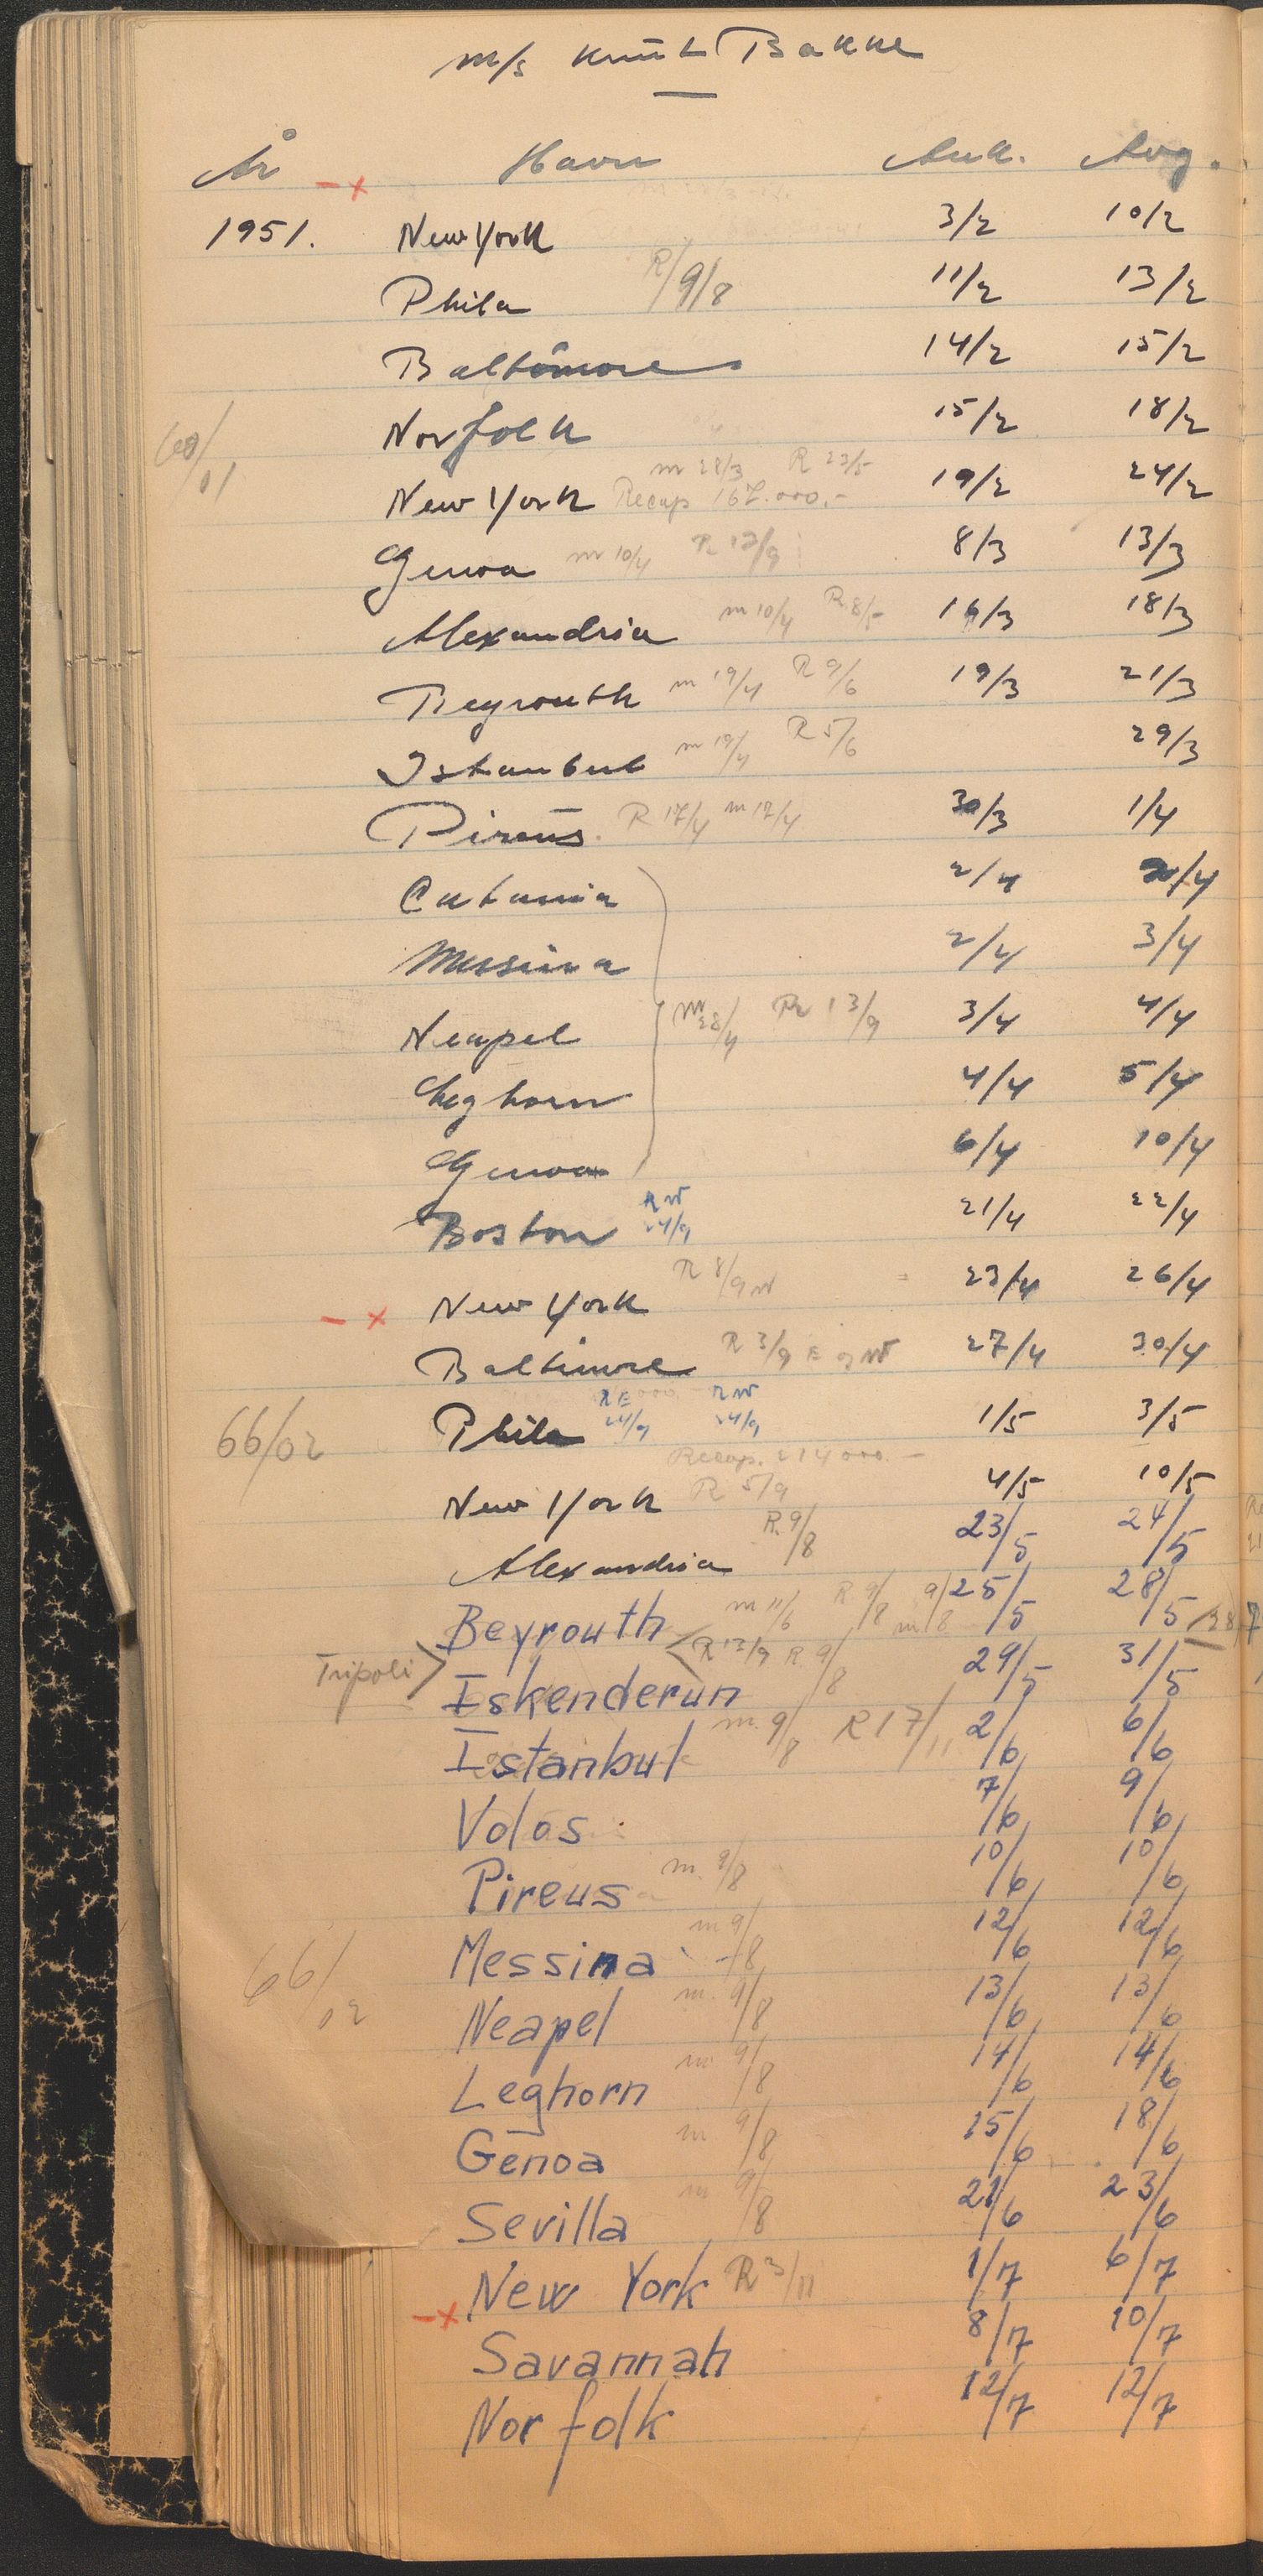 m/s Knut Bakke
År Havn Ank. Avg.
- x
1951. New York 3/2 10/2
Phila R/9/8 11/2 13/2
Baltimore 14/2 15/2
Norfolk 15/2 18/2
/01
m 28/3 R 23/5
New York Recap 167.000.- 19/2 24/2
Genoa m 10/4 R 13/9 8/3 13/3
Alexandria m 10/4 R 8/5 16/3 18/3
Beyrouth m 19/4 R 9/6 19/3 21/3
Istanbul m 19/4 R 5/6 29/3
Pireus R 17/4 m 17/4 30/3 1/4
Catania 2/4 /4
Messina 2/4 3/4
Neapel m 28/4 R 13/9 3/4 4/4
Leghorn 4/4 5/4
Genoa 6/4 10/4
Boston RW 24/9 21/4 22/4
- x New York R 8/9 W 23/4 26/4
Baltimore R 3/9 E og W 27/4 30/4
66/02 Phila RE 24/9 RW 24/9 1/5 3/5
Recap. 214000.-
New York R 5/9 4/5 10/5
Alexandria R. 9/8 23/5 24/5
Beyrouth m 11/6 R 9/8 m 9/8 25/5 28/5
Tripoli > R 13/9 R 9/8
Iskenderun 29/5 31/5
Istanbul m. 9/8 R 17/11 2/6 6/6
Volos 7/6 9/6
Pireus m. 9/8 10/6 10/6
Messina m 9/8 12/6 12/6
66/02
Neapel m. 9/8 13/6 13/6
Leghorn m. 9/8 14/6 14/6
Genoa m 9/8 15/6 18/6
Sevilla m 9/8 21/6 23/6
- x New York R 3/11 1/7 6/7
Savannah 8/7 10/7
Norfolk 12/7 12/7